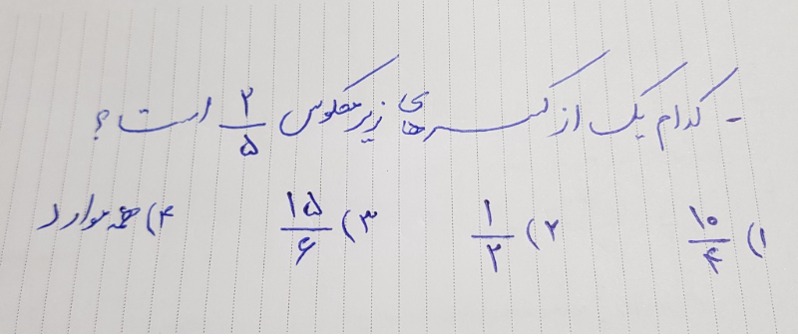 - کدام یک از کسرهای زیر معکوس ۲/۵ است؟
۱) ۱۰/۴ ۲) ۱/۲ ۳) ۱۵/۶ ۴) همه موارد